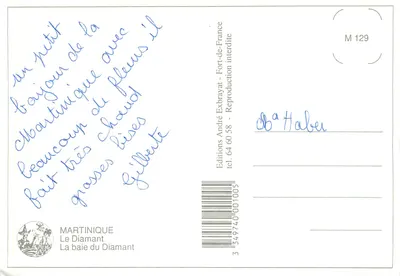 un petit
bonjour de la
Martinique avec
beaucoup de fleurs il
fait très chaud
grosses bises
Gilberte
MARTINIQUE
Le Diamant
La baie du Diamant
Editions André Exbrayat - Fort-de-France
tel. 64 60 58 - Reproduction interdite
3 349740 001005
M 129
Ma Haber